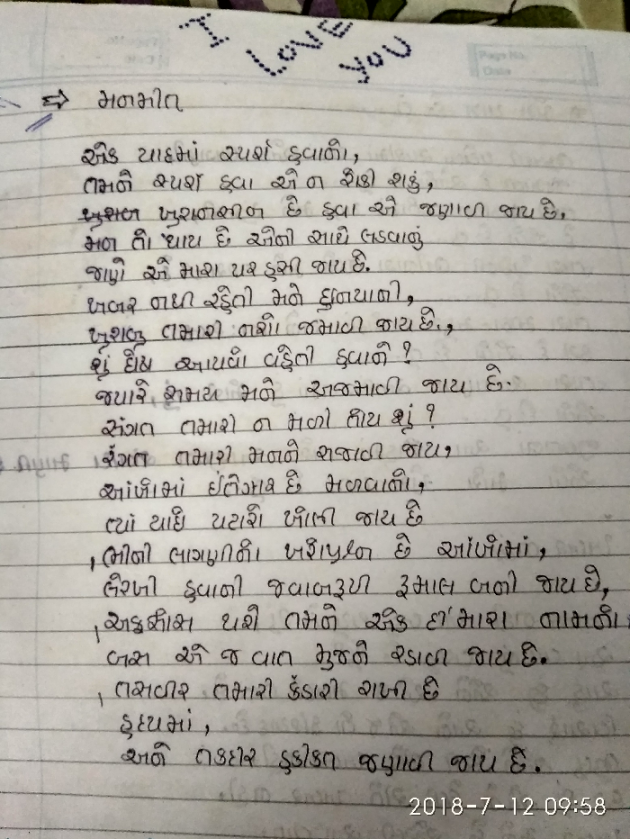 I LOVE YOU
Page No.
Date
⇒ મનમીત
એક યાદમાં સ્પર્શ હવાનો,
તમને સ્પર્શ હવા એ ન રોકી શકું,
ખુશબુ ખુશનસીબ છે હવા એ જણાવી જાય છે.
મન તો થાય છે એની સાથે લડવાનું
જાણે એ મારા પર હસી જાય છે.
ખબર નથી રહેતી મને દુનયાની,
ખુશબુ તમારો નશો જમાવી જાય છે.,
શું દોષ આપવો વહેતી હવાને?
જ્યારે સમય મને અજમાવી જાય છે.
સંગત તમારી ન મળી તોય શું?
રંગત તમારી મનને સજાવી જાય,
આંખોમાં ઈંતેઝાર છે મળવાનો,
ત્યાં યાદો પટારો ખોલી જાય છે
ભીની લાગણીનો છે આંખોમાં,
લેરખી હવાની જવાબરૂપી રૂમાલ બની જાય છે,
અહેસાસ થશે તમને એક દી' મારા નામનો
બસ એ જ વાત મુજને રડાવી જાય છે.
તસવીર તમારી કંડારી રાખી છે
હૃદયમાં,
અને તકદીર હકીકત જણાવી જાય છે.
2018-7-12 09:58